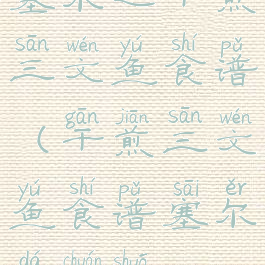 sān wén yú shí pǔ
三文鱼食谱
gān jiān sān wén
(干煎三文
yú shí pǔ sāi ěr
鱼食谱塞尔
dá chuán shuō